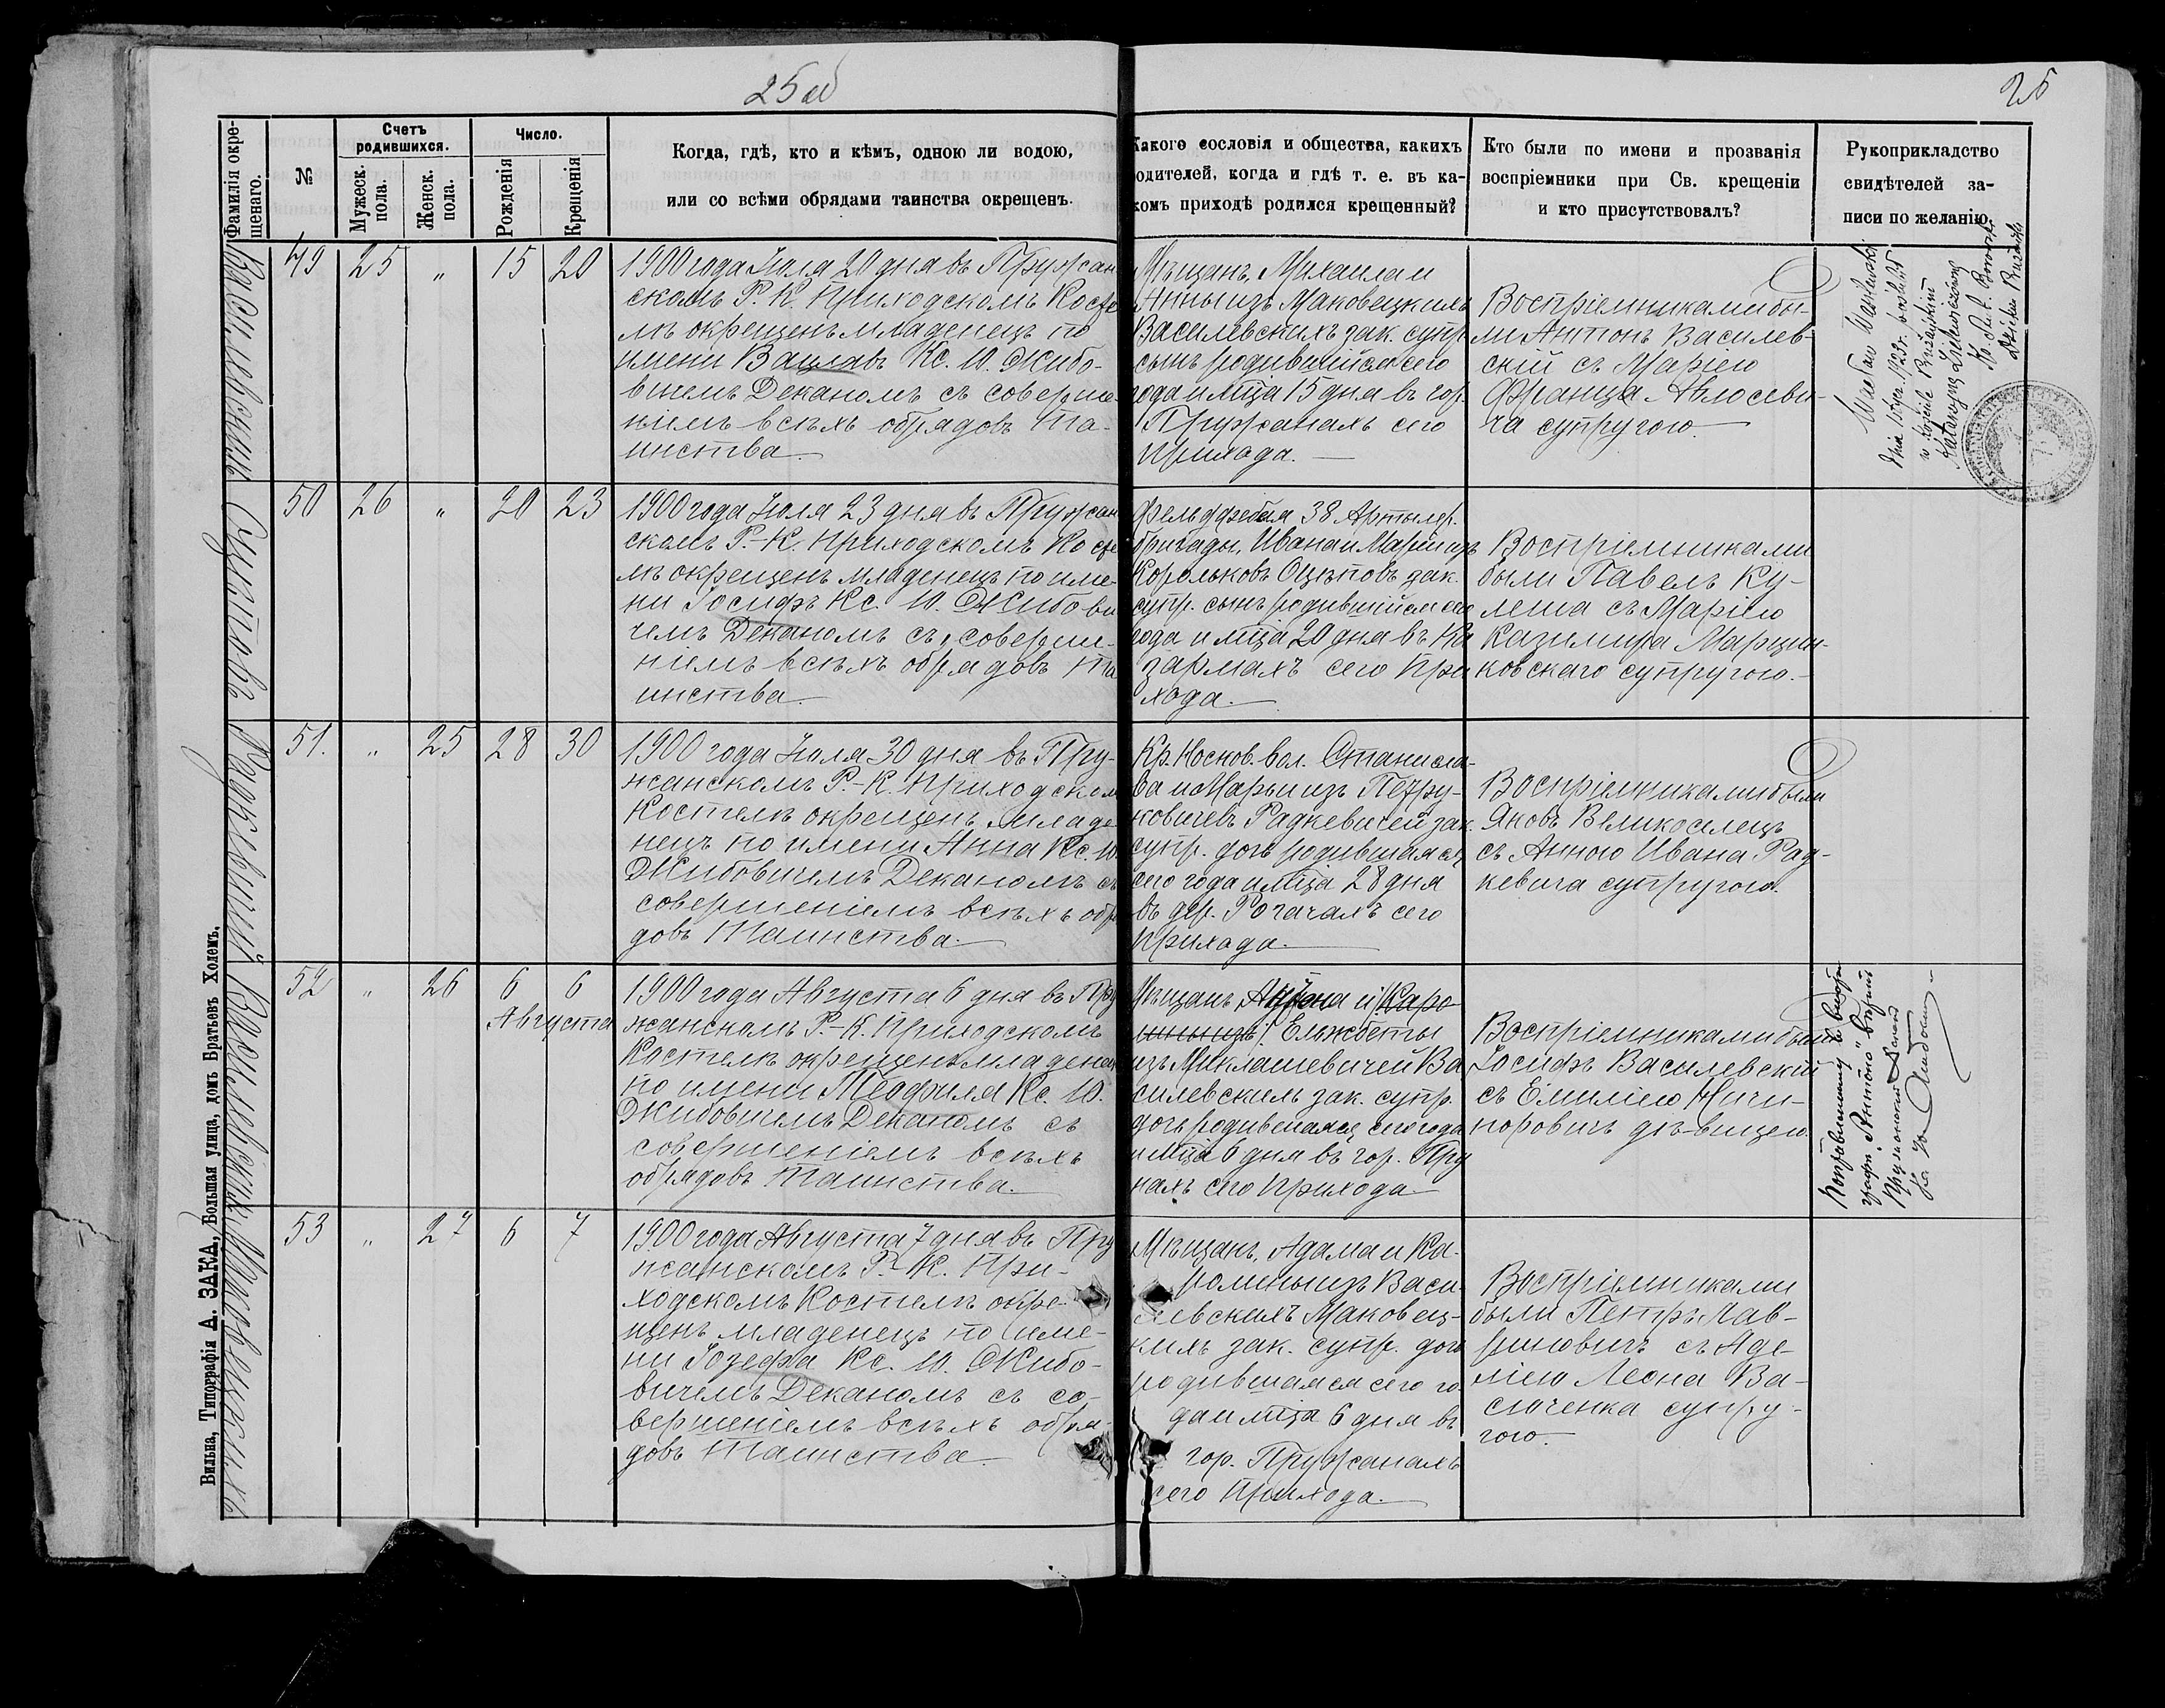 25 об
25
Фамилія окре-
щенаго.
№
Счетъ
родившихся.
Мужеск.
пола.
Женск.
пола.
Число.
Рожденія
Крещенія
Когда, гдѣ, кто и кѣмъ, одною ли водою,
или со всѣми обрядами таинства окрещенъ.
Какого сословія и общества, какихъ
родителей, когда и гдѣ т. е. въ ка-
комъ приходѣ родился крещенный?
Кто были по имени и прозванія
воспріемники при Св. крещеніи
и кто присутствовалъ?
Рукоприкладство
свидѣтелей за-
писи по желанію.
Василевскихъ
49 25 „ 15 20
1900 года Іюля 20 дня въ Пружан
скомъ Р. К. Приходскомъ Косте
лѣ окрещенъ младенецъ по
имени Вацлавъ Кс. Ю. Жибо-
вичемъ Деканомъ съ соверше-
ніемъ всѣхъ обрядовъ Та-
инства.
Мѣщанъ, Михаила и
Анны изъ Маковецкихъ
Василевскихъ зак. супр.
сынъ родившійся сего
года и мѣца 15 дня въ гор.
Пружанахъ сего
прихода.
Воспріемниками бы-
ли Антонъ Василев-
скій съ Маріею
Франца
ча супругою.
Wacław
w kościele Prużańskim
Ks.
Оцѣповъ
50 26 „ 20 23
1900 года Іюля 23 дня въ Пружан
скомъ Р.-К. Приходскомъ Косте
лѣ окрещенъ младенецъ по име-
ни Іосифъ Кс. Ю. Жибови
чемъ Деканомъ съ соверше-
ніемъ всѣхъ обрядовъ Та
инства.
Фельдфебеля 38 Артилер.
бригады, Ивана и Маріи изъ
Корольковъ Оцѣповъ зак.
супр. сынъ родившійся сего
года и мѣца 20 дня въ Ка
зармахъ сего При
хода.
Воспріемниками
были Павелъ Ку-
леша съ Маріею
Казимира Марцин-
ковскаго супругою.
Радкевичей
51. „ 25 28 30
1900 года Іюля 30 дня въ Пру-
жанскомъ Р.-К. Приходском
Костелѣ окрещенъ младе
нецъ по имени Анна Кс. Ю.
Жибовичемъ Деканомъ съ
совершеніемъ всѣхъ обря
довъ Таинства.
Кр. Носков. вол. Станисла-
ва и Марьи изъ Петру-
ковичевъ Радкевичей зак.
супр. дочь родившаяся
сего года и мѣца 28 дня
въ дер. Рогачахъ сего
Прихода.
Воспріемниками были
Яковъ Великоселецъ
съ Анною Ивана Рад-
кевича супругою.
Василевскихъ
52 „ 26 6 6
Августа
1900 года Августа 6 дня въ Пру
жанскомъ Р.-К. Приходскомъ
Костелѣ окрещенъ младенец
по имени Теофиля Кс. Ю.
Жибовичемъ Деканомъ съ
совершеніемъ всѣхъ
обрядовъ Таинства.
Мѣщанъ, Антона и Каро
лины изъ Ельжбеты
изъ Миклашевичей Ва
силевскихъ зак. супр.
дочь родившаяся сего года
и мѣца 6 дня въ гор. Пру
нахъ сего Прихода
Воспріемниками были
Іосифъ Василевскій
съ Емиліею Ничи-
поровичъ дѣвицею.
графѣ „Антона“ вѣрно
Пружанскій Деканъ
Кс. Ю. Жибович
Маковецкихъ
53 „ 27 6 7
1900 года Августа 7 дня въ Пру
жанскомъ Р.-К. При-
ходскомъ Костелѣ окре-
щенъ младенецъ по име-
ни Іозефа Кс. Ю. Жибо-
вичемъ Деканомъ съ со-
вершеніемъ всѣхъ обря-
довъ Таинства.
Мѣщанъ, Адама и Ка-
ролины изъ Васи-
левскихъ Маковец-
кихъ зак. супр. дочь
родившаяся сего го
да и мѣца 6 дня въ
гор. Пружанахъ
сего Прихода.
Воспріемниками
были Петръ Лав-
риновичъ съ Аде-
лею Леона Ва-
сюченка супру-
гою.
Вильна, Типографія А. ЗАКА, Большая улица, домъ Братьевъ Холемъ.